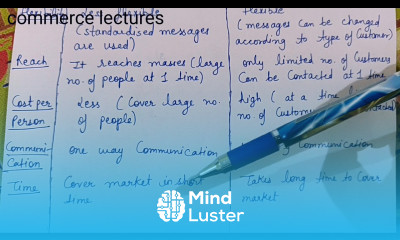 commerce lectures
Less flexible
flexible
(standardised messages
are used)
(messages can be changed
according to type of customer)
Reach
It reaches masses (large
no. of people at 1 time)
only limited no. of customers
can be contacted at 1 time
Cost per
Person
Less (Cover large no.
of people)
high ( at a time
no. of
Communi-
cation
one way Communication
Communication
Time
Cover market in short
time
Takes long time to cover
market
Mind
Luster